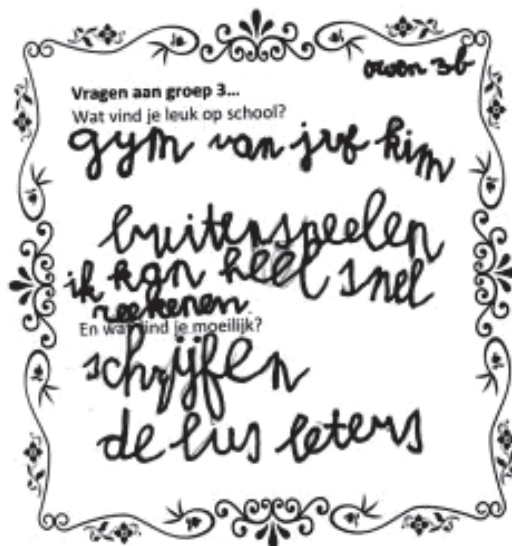 owen 3b
Vragen aan groep 3...
Wat vind je leuk op school?
gym van juf kim
buitenspeelen
ik kan heel snel
reekenen
En wat vind je moeilijk?
schrijfen
de lus leters